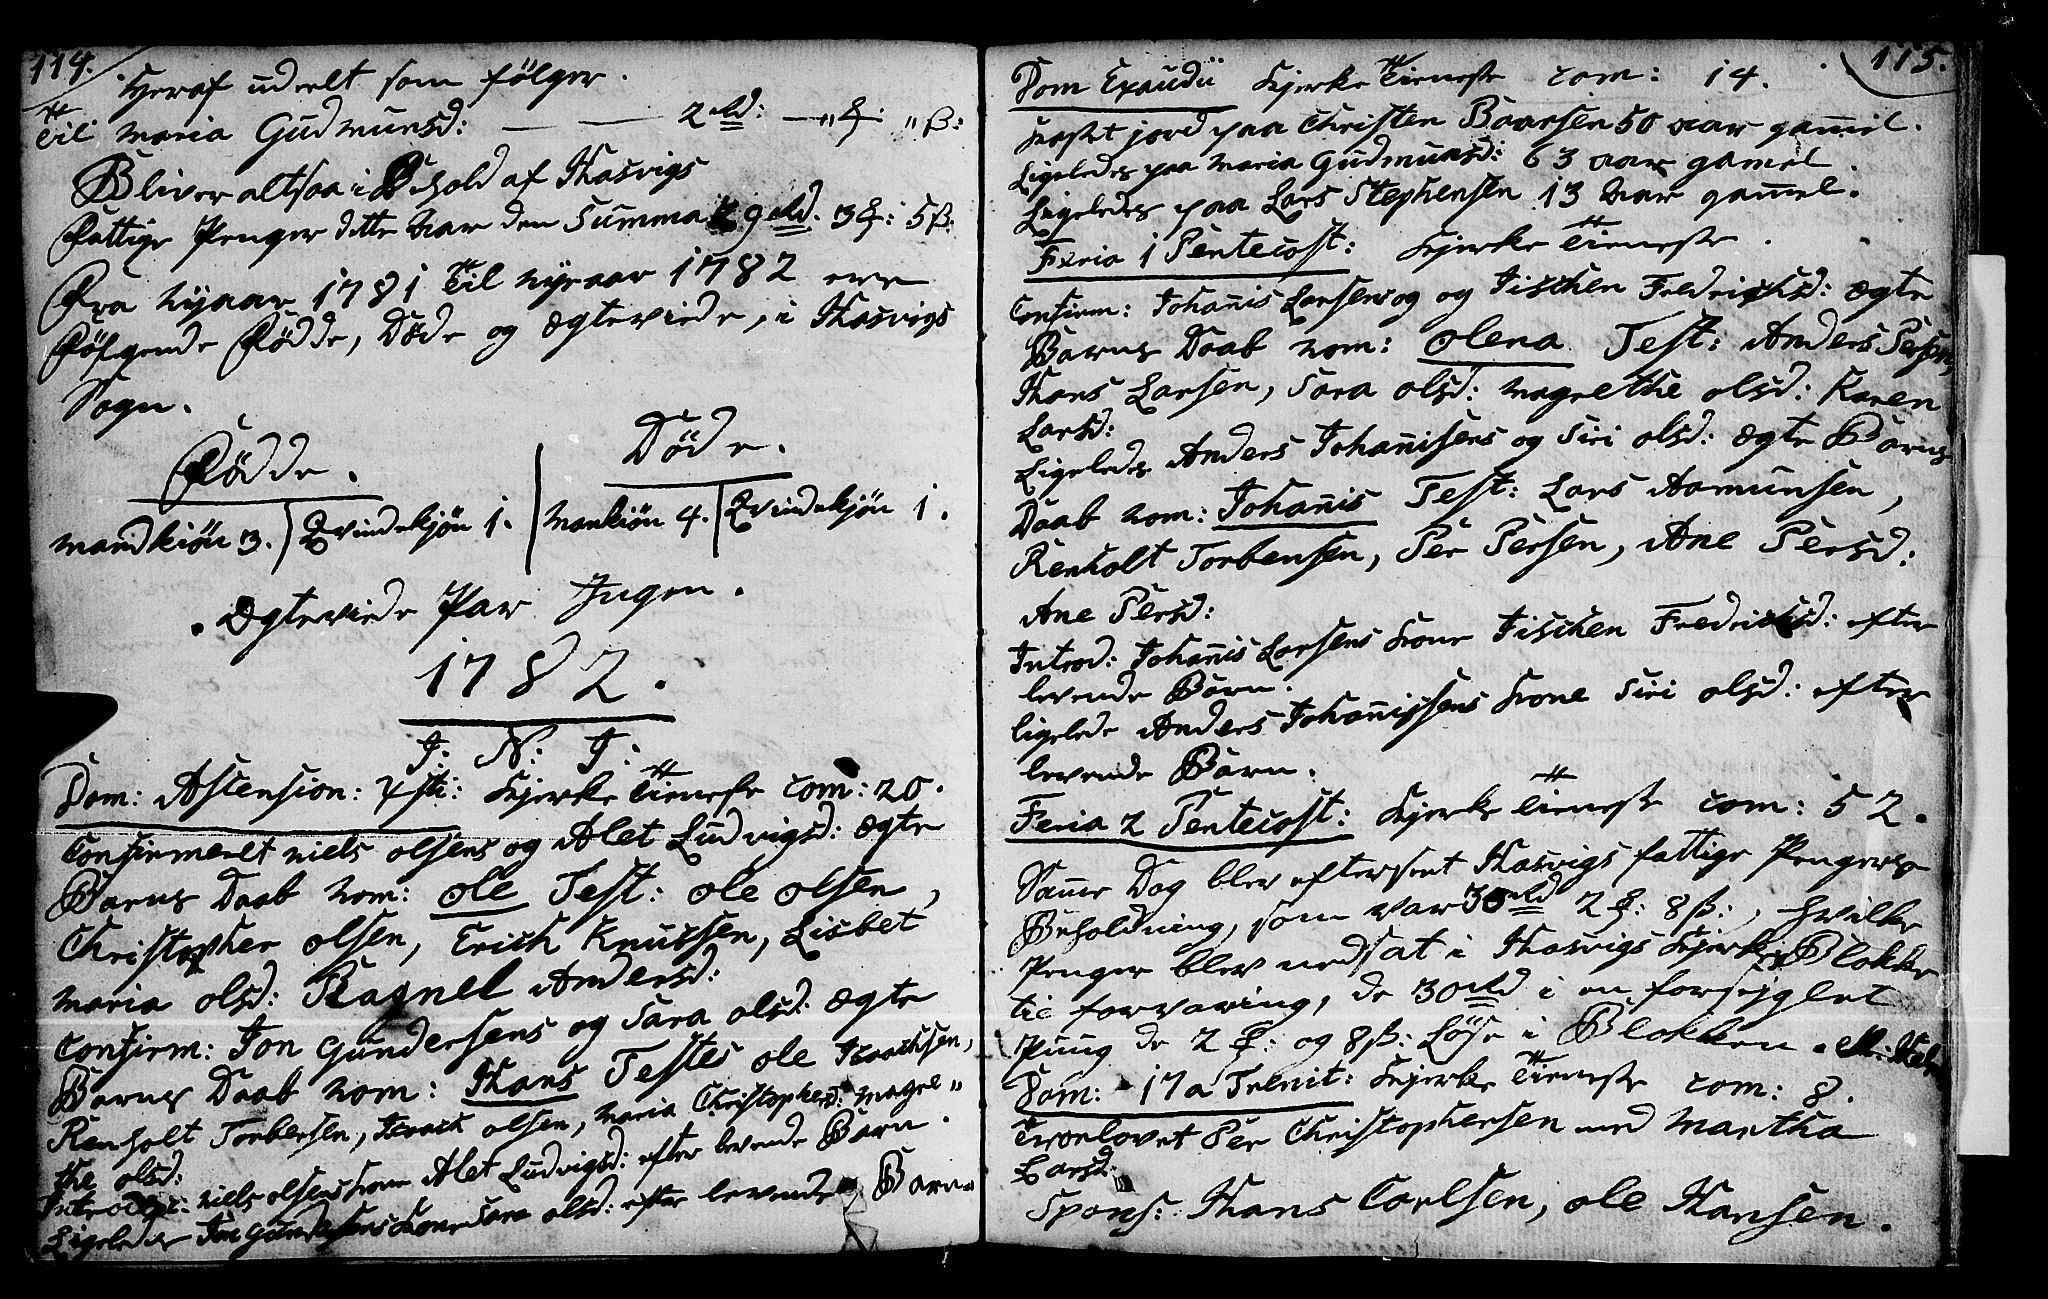 114.
Heraf udelt som følger.
Til Maria Gudmunsd: — — 2 rd: — „ ₰ „ ß:
Bliver altsaa i Behold af Hasvigs
Fattige Penger dette Aar den Summa 9 rd. 3 ₰: 5 ß.
Fra Nyaar 1781 Til Nyeaar 1782 ere
Følgende Födde, Döde og Ægteviede, i Hasvigs
Sogn.
Födde. Döde.
Mandkiön 3. Qvindekjön 1. Mankiön 4. Qvindekjön 1.
Ægteviede Par Ingen.
1782.
J. N. J.
Dom: Ascension: Xsti: Kjerke Tieneste Com: 20.
Confirmeret Niels Olsens og Alet Ludvigsd: Ægte
Barns Daab Nom: Ole Test: Ole Olsen,
Christopher Olsen, Erich Knutsen, Lisbet
Maria Olsd: Ragnel Andersd:
Confirm: Jon Gundersens og Sara Olsd: Ægte
Barns Daab Nom: Hans Testes Ole Isaachsen,
Renholt Torbersen, Isaach Olsen, Maria Christophersd: Magre„
the Olsd:
Introd: Niels Olsens Kone Alet Ludvigsd: efter levende Barn.
Ligeledes Jon Gundersens Kone Sara Olsd: efter levende Barn.
115.
Dom Exaudii Kjerke Tieneste Com: 14.
Kastet jord paa Christen Baarsen 50 aar gammel.
Ligeledes paa Maria Gudmunsd: 63 aar gamel
Ligeledes paa Lars Stephensen 13 Aar gammel.
Feria 1 Pentecost: Kjerke Tieneste.
Confirm: Johannis Larsens og og Fischen Fredrichsd: Ægte
Barns Daab Nom: Olena Test: Anders Persen,
Hans Larsen, Sara Olsd: Magrethe Olsd: Karen
Larsd:
Ligeledes Anders Johannisens og Siri Olsd: Ægte Barns
Daab Nom: Johannis Test: Lars Aamunsen,
Renholt Torbensen, Per Persen, Ane Persd:
Ane Persd:
Introd: Johannis Larsens Kone Fischen Fredrichsd: efter
levende Barn.
ligelede Anders Johannissens Kone Siri Olsd: efter
levende Barn.
Feria 2 Pentecost: Kjerke Tieneste Com: 52.
Samme Dag blev eftersent Hasvigs fattige Pengers
Beholdning, som var 30 rd 2 ₰: 8 ß:, hvilke
Penger blev nedsat i Hasvigs Kjerkes Blokke
til forvaring, de 30 rd i en forseglet
Pung de 2 ₰: og 8 ß: Löse i Blokken.
Dom: 17 a Trinit: Kjerke Tieneste Com: 8.
Troelovet Per Christophersen med Martha
Larsd:
Spons: Hans Carlsen, Ole Hansen.